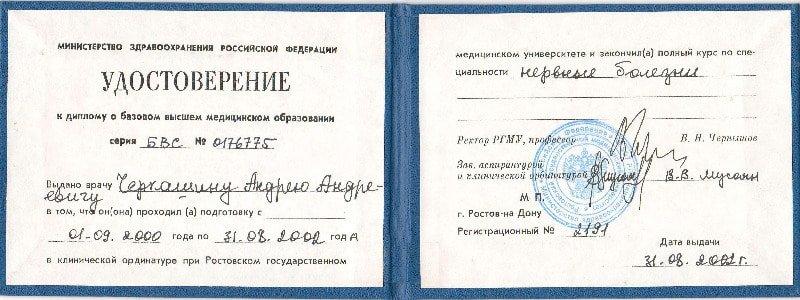 МИНИСТЕРСТВО ЗДРАВООХРАНЕНИЯ РОССИЙСКОЙ ФЕДЕРАЦИИ
УДОСТОВЕРЕНИЕ
к диплому о базовом высшем медицинском образовании
серия БВС № 0176775
Выдано врачу Черкашину Андрею Андре-
евичу
в том, что он(она) проходил (а) подготовку с
01-09. 2000 года по 31.08.2002 год А
в клинической ординатуре при Ростовском государственном
медицинском университете и закончил(а) полный курс по спе-
циальности нервные болезни
Ректор РГМУ, профессор В. Н. Чернышов
Зав. аспирантурой
и клинической ординатурой В.В. Мусаян
М П.
г. Ростов-на Дону
Регистрационный № 2191
Дата выдачи
31.08.2002г.